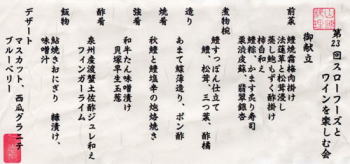 第23回スローフーズと
ワインを楽しむ会
御献立
前菜
鱧焼霜梅肉掛け
法蓮草と松茸浸し
蒸し鮑もずく酢掛け
柿白和え
鱧粽、かます炙り寿司
栗渋皮蘇、翡翠銀杏
煮物椀
鱧すっぽん仕立て
鱧、松茸、三つ葉、酢橘
造り
あまて鰈薄造り、ポン酢
焼肴
秋鱧と鱧塩辛の炮烙焼き
強肴
和牛たん味噌漬け
貝塚早生玉葱
酢肴
泉州産渡蟹土佐酢ジュレ和え
フィンガーライム
飯物
鮎焼きおにぎり 糠漬け、
味噌汁
デザート
マスカット、西瓜グラニテ
ブルーベリー